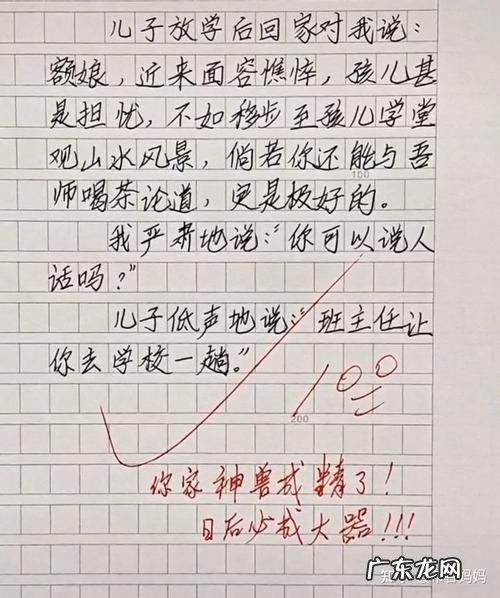 儿子放学后回家对我说：
额娘，近来面容憔悴，孩儿甚
是担忧，不如移步至孩儿学堂
观山水风景，倘若你还能与吾
100
师喝茶论道，更是极好的。
我严肃地说：“你可以说人
话吗？”
儿子低声地说：“班主任让
你去学校一趟。”
100
200
你家神兽成精了！
日后必成大器！！！
广东龙网